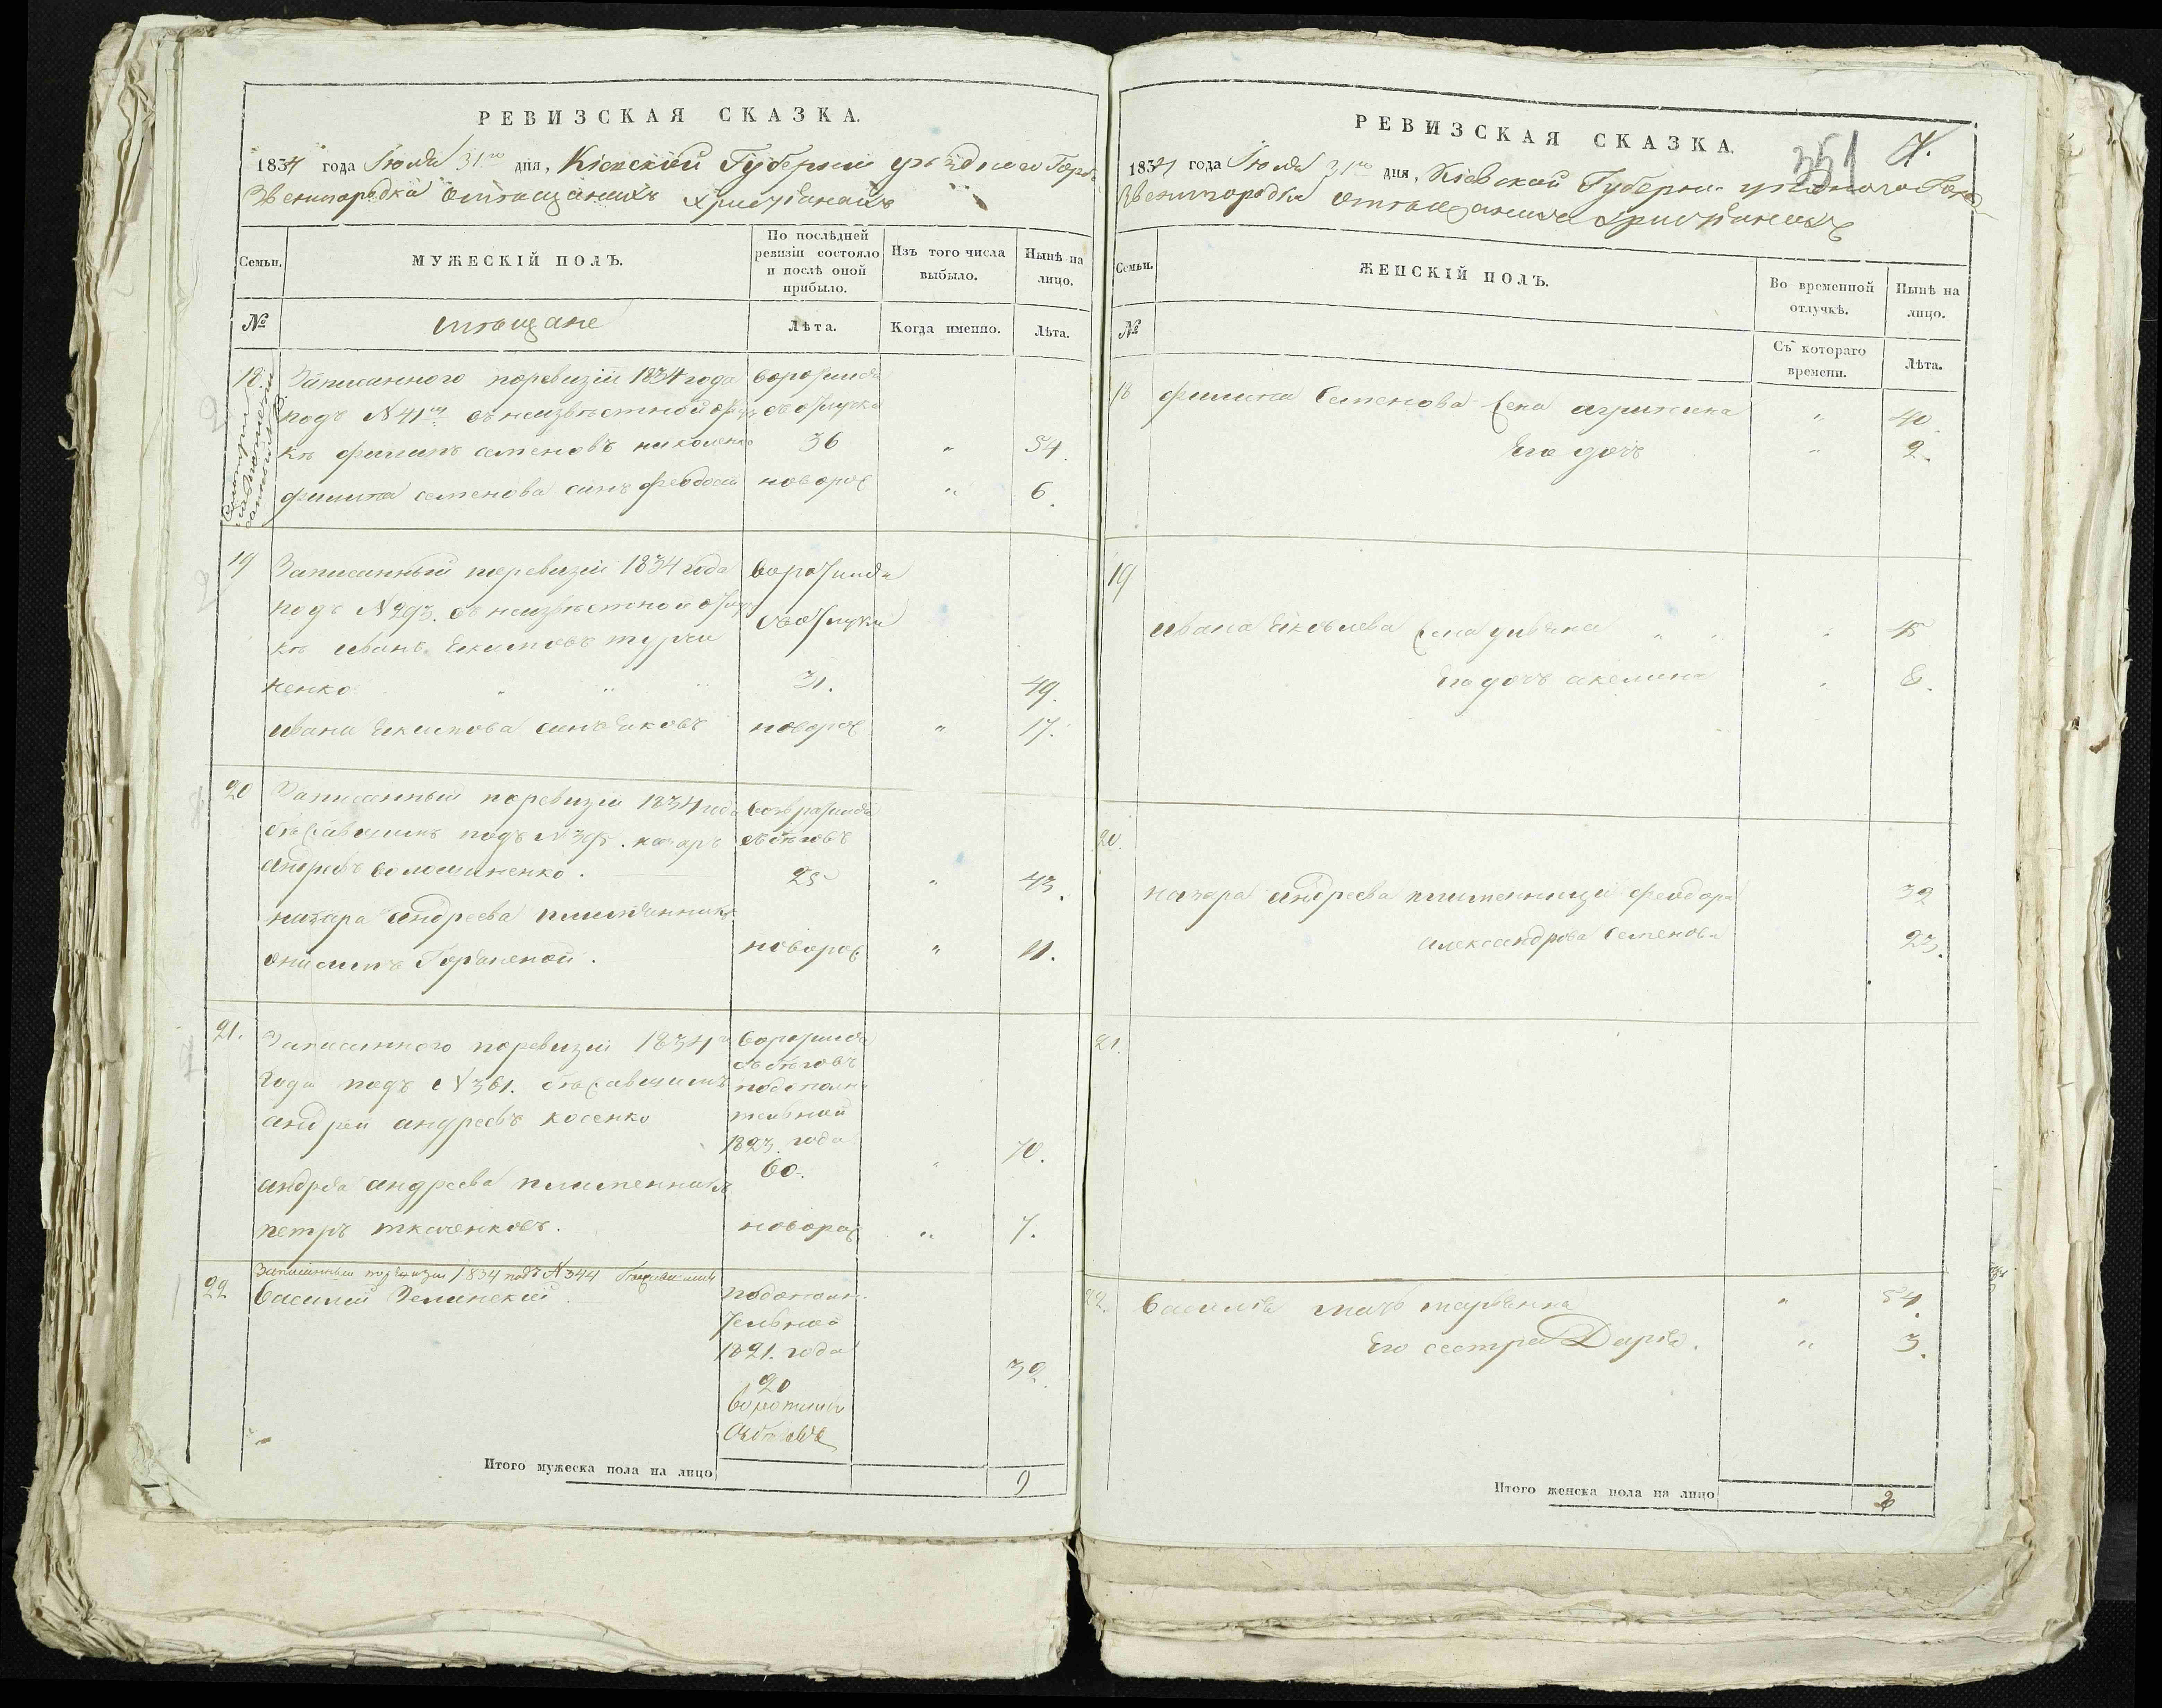 РЕВИЗСКАЯ СКАЗКА.
1834 года Июля 31го дня, Кіевской Губерніи уѣзднаго Горо
Звенигородка омѣщанихъ христіанахъ
Семьи.
МУЖЕСКІЙ ПОЛЪ.
По послѣдней
ревизіи состояло
и послѣ оной
прибыло.
Изъ того числа
выбыло.
Нынѣ на
лицо.
№
мѣщане
Лѣта.
Когда именно.
Лѣта.
18. Записанного поревизіи 1834 года
подъ №41мъ въ неизвѣстной отлуч съ отлучки
кѣ филипъ семеновъ николенко 36 " 54.
филипа семенова синъ феодосій новорож " 6.
19 Записанный поревизіи 1834 года
подъ №293. въ неизвѣстной отлуч съ отлучки
кѣ иванъ Екимовъ
ченко " " " 31. 49.
ивана Екимова синъ Яковъ новорож " 17.
20 Записанный поревизіи 1834 года
бѣжавшимъ подъ назаръ съ бѣговъ
андреевъ волошиненко. 25 " 43.
назара андреева плимянникъ
онисимъ новорож " 11.
21. Записанного поревизіи 1834го
года подъ №361. бѣжавшимъ
андрей андреевъ косенко
съ бѣговъ
подополни
тельной
1823. года
60. " 70.
андрея андреева плименникъ
петръ ткаченковъ. новорож " 7.
22 Записанный поревизіи 1834 подъ №344 бѣжавшимъ
василий Зелинский.
подополни
тельной
1821. года
20 39.
Итого мужеска пола на лицо 9
РЕВИЗСКАЯ СКАЗКА.
351
1834 года Июля 31го дня, Кіевской Губерніи уѣзднаго Горо
Звенигородки омѣщанихъ христіанахъ
Семьи.
ЖЕНСКІЙ ПОЛЪ.
Во временной
отлучкѣ.
Нынѣ на
лицо.
№
Съ котораго
времени.
Лѣта.
18 филипа Семенова жена агрипина " 40.
Его дочь " 2.
19
ивана жена " " " 45
Его дочь акелина " 8.
20.
назара андреева плименници феодора 32
александрова Семенова 23.
21.
22. Василія мать " 54.
Его сестра Дарія. " 3.
Итого женска пола на лицо